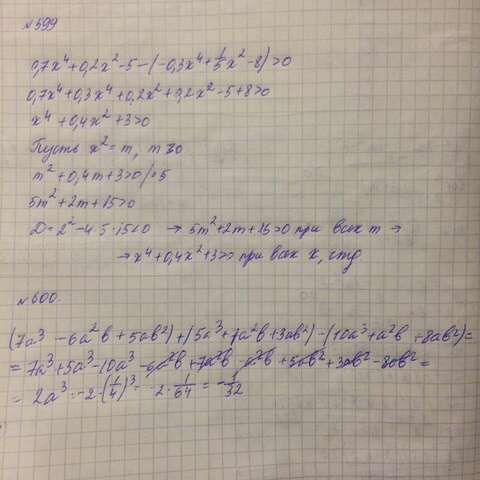 №599
0,7x⁴+0,2x²-5-(-0,3x⁴+1/5x²-8)>0
0,7x⁴+0,3x⁴+0,2x²+0,2x²-5+8>0
x⁴+0,4x²+3>0
Пусть x²=m, m≥0
m²+0,4m+3>0/·5
5m²+2m+15>0
D=2²-4·5·15<0 → 5m²+2m+15>0 при всех m →
→ x⁴+0,4x²+3>0 при всех x, чтд
№600.
(7a³-6a²b+5ab²)+(5a³+7a²b+3ab²)-(10a³+a²b+8ab²)=
=7a³+5a³-10a³-6a²b+7a²b-a²b+5ab²+3ab²-8ab²=
=2a³=-2·(1/4)³=-2·1/64=-1/32